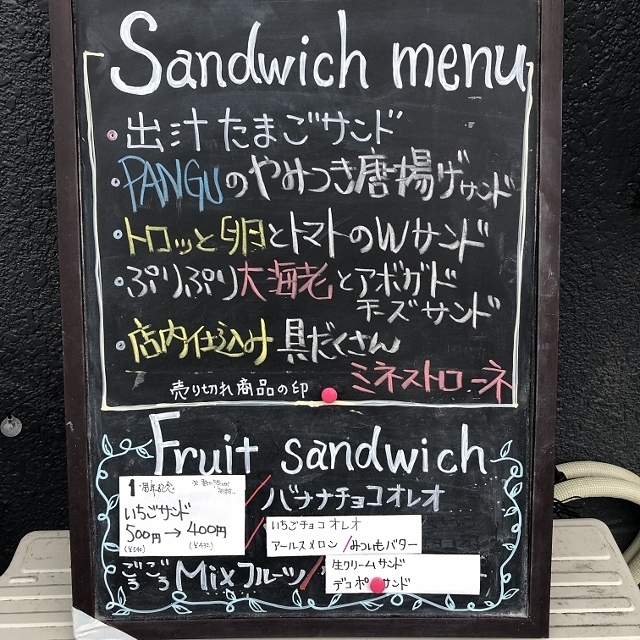 Sandwich menu
出汁たまごサンド
PANGUのやみつき唐揚げサンド
トロッと卵とトマトのWサンド
ぷりぷり大海老とアボガド
チーズサンド
店内仕込み 具だくさん
ミネストローネ
売り切れ商品の印
Fruit sandwich
1周年記念
いちごサンド
500円→400円
(¥540) (¥432)
バナナチョコオレオ
いちごチョコオレオ
アールスメロン/みついもバター
生クリームサンド
デコポンサンド
ごろごろ Mixフルーツ